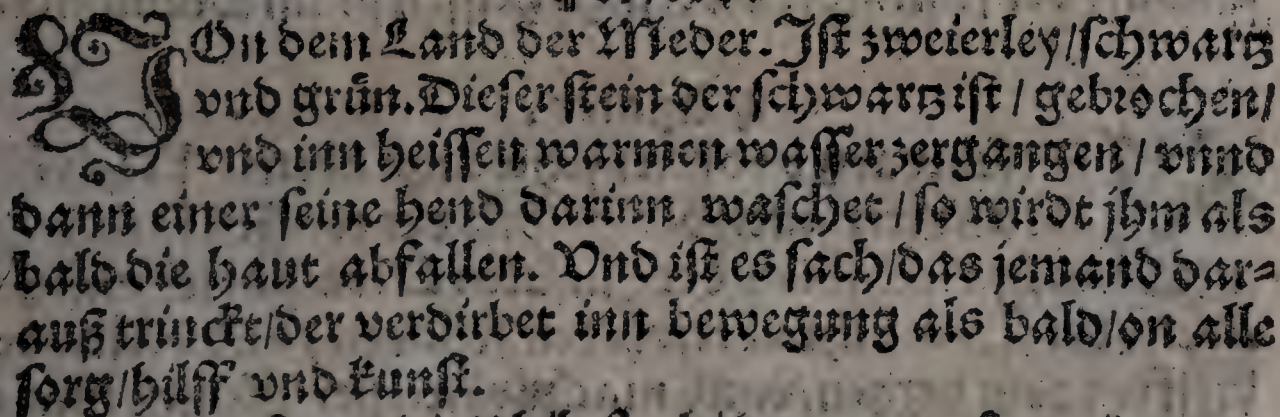 VOn dem Land der Meder. Ist zweierley/schwartz
vnd grün. Dieser stein der schwartz ist / gebrochen/
vnd inn heissen warmen wasser zergangen / vnnd
dann einer seine hend darinn waschet / so wirdt jhm als
bald die haut abfallen. Vnd ist es sach/das jemand dar=
auß trinckt/der verdirbet inn bewegung als bald/on alle
sorg/hilff vnd kunst.